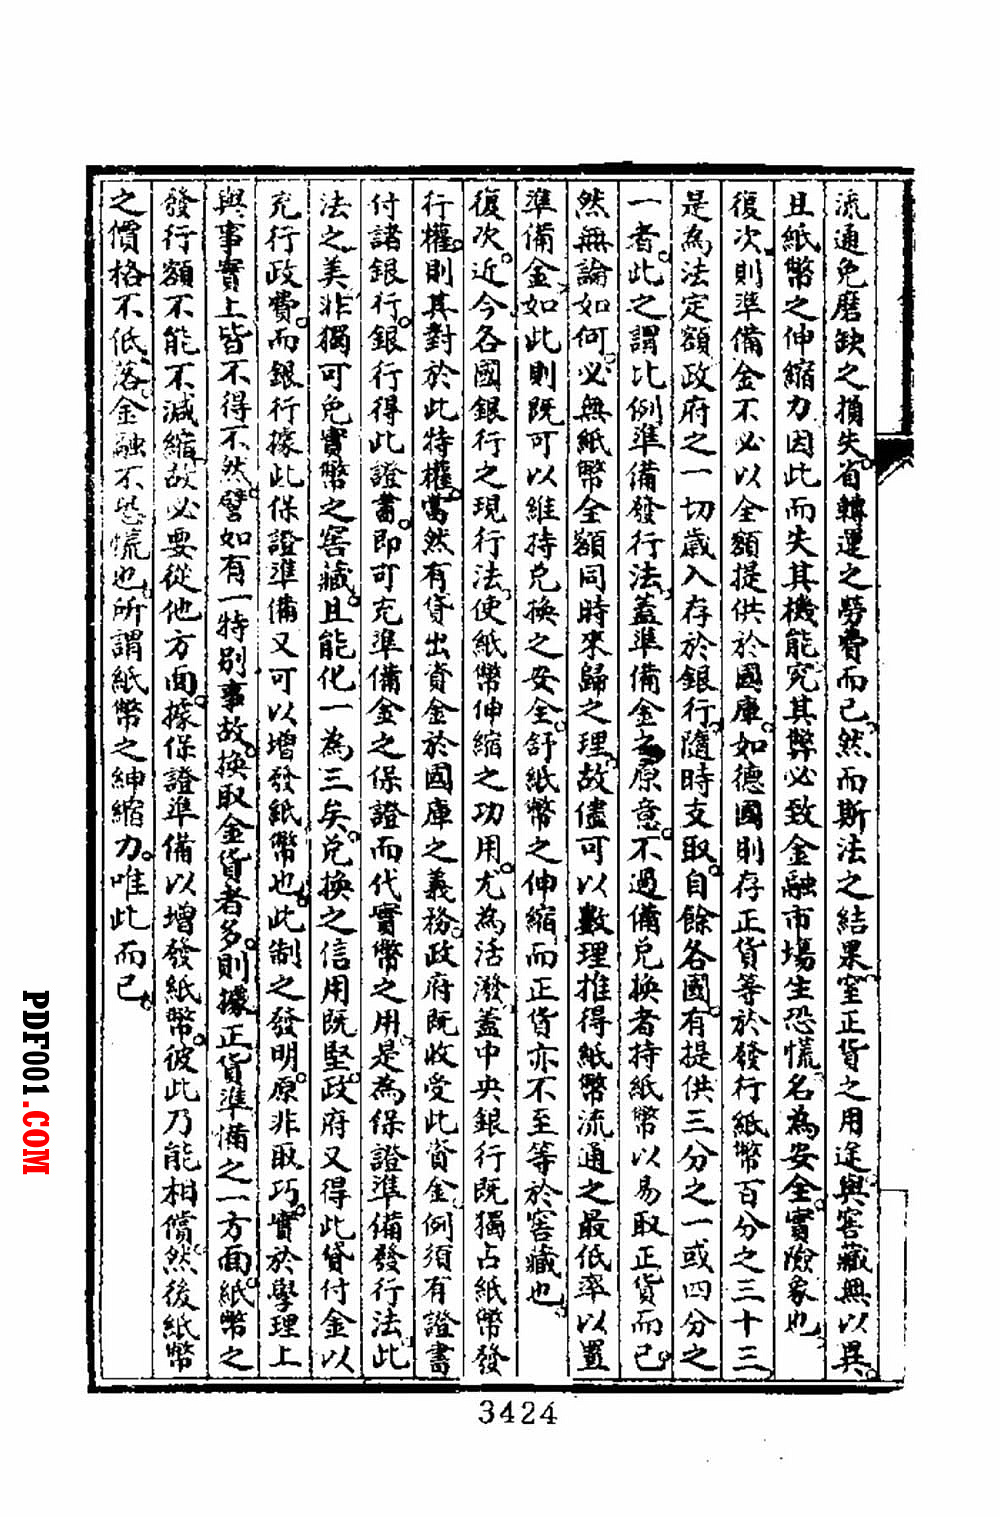 流通免磨缺之損失。省轉運之勞費而已。然而斯法之結果。窒正貨之用途。與窖藏無以異。
且紙幣之伸縮力因此而失其機能。究其弊必致金融市場生恐慌。名為安全。實險象也。
復次。則準備金不必以全額提供於國庫。如德國則存正貨等於發行紙幣百分之三十三
是為法定額。政府之一切歲入存於銀行。隨時支取。自餘各國。有提供三分之一或四分之
一者。此之謂比例準備發行法。蓋準備金之原意。不過備兌換者持紙幣以易取正貨而已。
然無論如何。必無紙幣全額同時來歸之理。故儘可以數理推得紙幣流通之最低率以置
準備金。如此則既可以維持兌換之安全。舒紙幣之伸縮。而正貨亦不至等於窖藏也。
復次。近今各國銀行之現行法。使紙幣伸縮之功用。尤為活潑。蓋中央銀行既獨占紙幣發
行權。則其對於此特權。當然有貸出資金於國庫之義務。政府既收受此資金。例須有證書
付諸銀行。銀行得此證書。即可充準備金之保證而代實幣之用。是為保證準備發行法。此
法之美。非獨可免實幣之窖藏。且能化一為三矣。兌換之信用既堅。政府又得此貸付金以
充行政費。而銀行據此保證準備又可以增發紙幣也。此制之發明。原非取巧。實於學理上
與事實上皆不得不然。譬如有一特別事故。換取金貨者多。則據正貨準備之一方面。紙幣之
發行額不能不減縮。故必要從他方面。據保證準備以增發紙幣。彼此乃能相償。然後紙幣
之價格不低落。金融不恐慌也。所謂紙幣之紳縮力。唯此而已。
3424
PDF001.COM